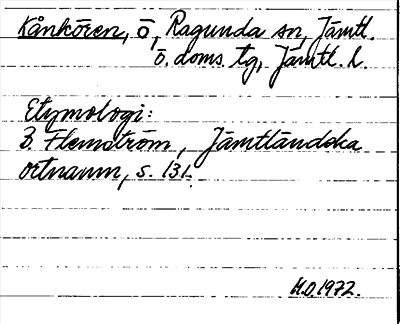 Kånkören, ö, Ragunda sn, Jämtl.
ö. doms. tg, Jämtl. l.
Etymologi:
B. Flemström, Jämtländska
ortnamn, s. 131.
H.O. 1972.